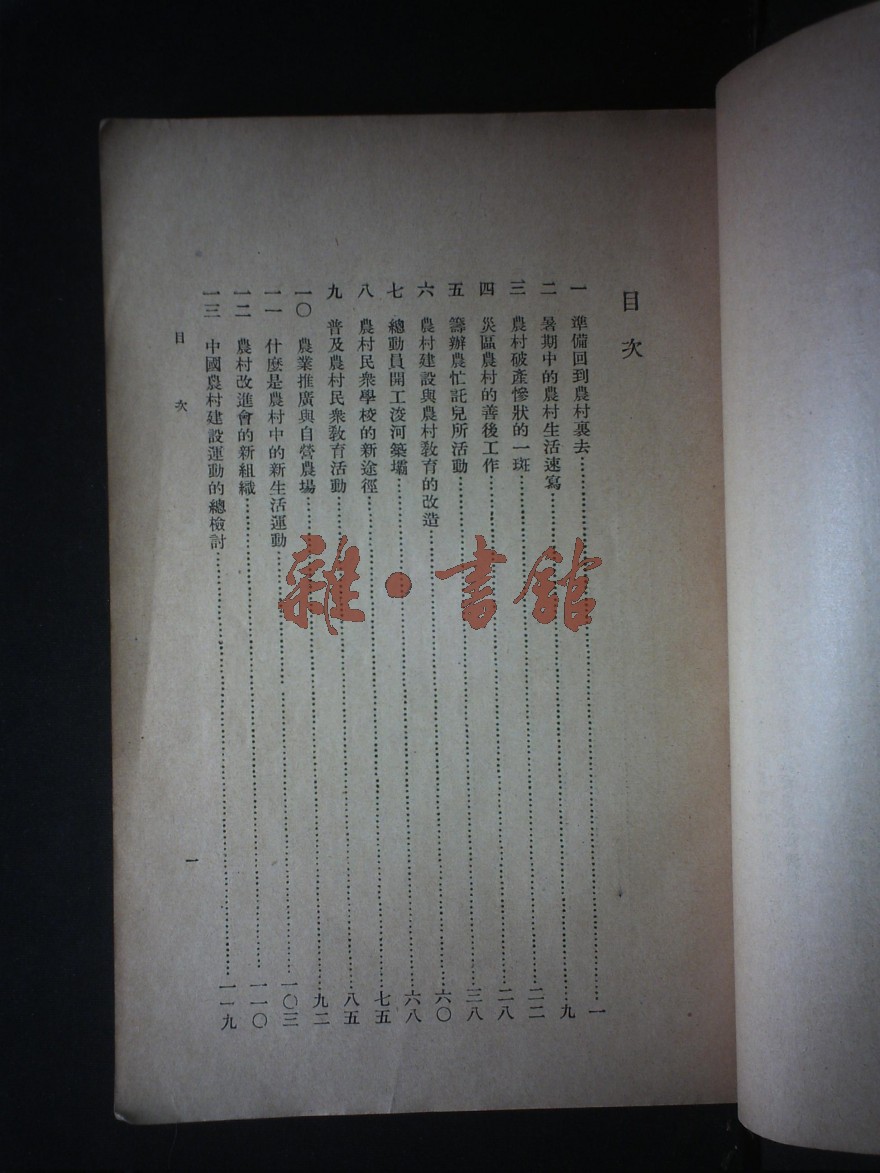 目次
一 準備回到農村裏去……一
二 暑期中的農村生活速寫……九
三 農村破產慘狀的一斑……二二
四 災區農村的善後工作……二八
五 籌辦農忙託兒所活動……三八
六 農村建設與農村教育的改造……六〇
七 總動員開工浚河築壩……六八
八 農村民衆學校的新途徑……七五
九 普及農村民衆教育活動……八五
一〇 農業推廣與自營農場……九二
一一 什麽是農村中的新生活運動……一〇三
一二 農村改進會的新組織……一一〇
一三 中國農村建設運動的總檢討……一一九
目次
一
雜·書館